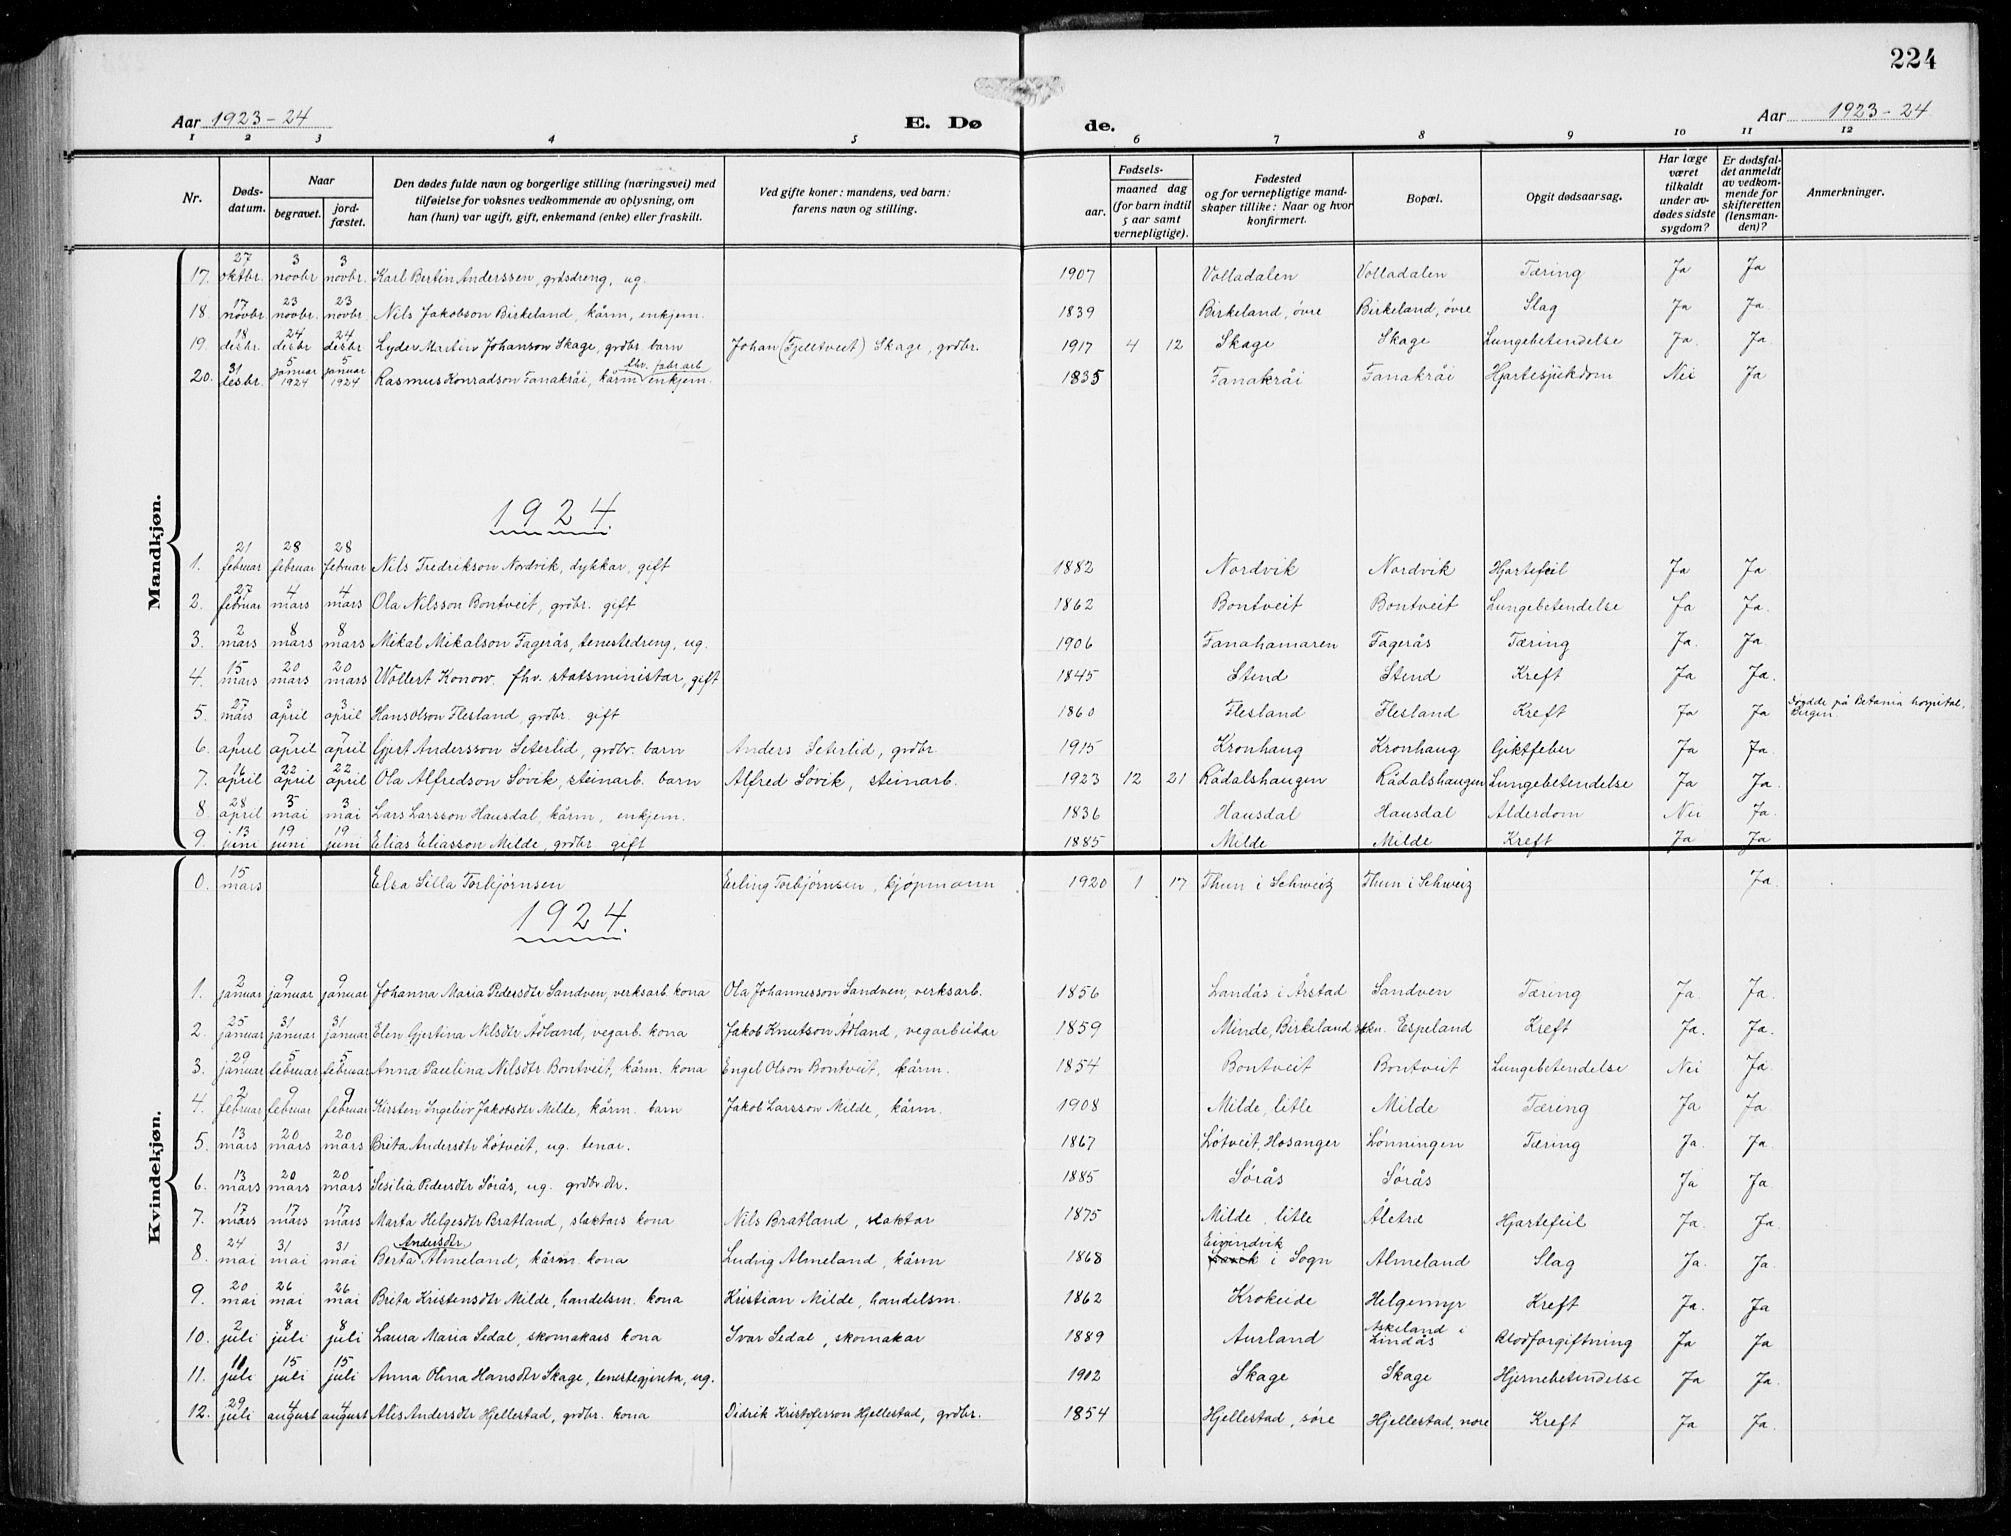 224
Aar 1923-24 E. Dø de. Aar 1923-24
1 2 3 4 5 6 7 8 9 10 11 12
Nr. | Døds-datum. | Naar begravet. | jord-fæstet. | Den dødes fulde navn og borgerlige stilling (næringsvei) med tilføielse for voksnes vedkommende av oplysning, om han (hun) var ugift, gift, enkemand (enke) eller fraskilt. | Ved gifte koner: mandens, ved barn: farens navn og stilling. | Fødsels- aar. | maaned | dag (for barn indtil 5 aar samt vernepligtige). | Fødested og for vernepligtige mand-skaper tillike: Naar og hvor konfirmert. | Bopæl. | Opgit dødsaarsag. | Har læge været tilkaldt under av-dødes sidste sygdom? | Er dødsfal-det anmeldt av vedkom-mende for skifteretten (lensman-den)? | Anmerkninger.
Mandkjøn.
17. 27 oktbr. 3 novbr 3 novbr. Karl Bertin Anderssen, grdsdreng, ug. 1907 Volladalen Volladalen Tæring Ja Ja
18. 17 novbr. 23 novbr. 23 novbr. Nils Jakobson Birkeland, kårm, enkjem. 1839 Birkeland, övre Birkeland, övre Slag Ja Ja
19. 18 desbr. 24 desbr 24 desbr Lyder Martin Johanson Skage, grdbr. barn Johan (Fjelltveit) Skage, grdbr. 1917 4 12 Skage Skage Lungebetendelse Ja. Ja.
20. 31 desbr. 5 januar 1924 5 januar 1924 Rasmus Konradson Fanakråi, kårm fhv. fabr.arb enkjem. 1835 Fanakråi Fanakråi Hjartesjukdom Nei Ja
1924.
1. 21 februar 28 februar 28 februar Nils Fredrikson Nordvik, dykkar, gift 1882 Nordvik Nordvik Hjartefeil Ja Ja
2. 27 februar 4 mars 4 mars Ola Nilsson Bontveit, grdbr. gift 1862 Bontveit Bontveit Lungebetendelse Ja Ja.
3. 2 mars 8 mars 8 mars Mikal Mikalson Fagerås, tenestedreng, ug. 1906 Fanahamaren Fagerås Tæring Ja. Ja.
4. 15 mars 20 mars 20 mars Wollert Konow. fhv. statsministar, gift 1845 Stend Stend Kreft Ja Ja.
5. 27 mars 3 april 3 april Hans Olson Flesland, grdbr. gift 1860 Flesland Flesland Kreft Ja Ja Dødde på Betania hospital, Bergen.
6. 1 april 7 april 7 april Gjert Andersson Seterlid, grdbr. barn Anders Seterlid, grdbr. 1915 Kronhaug Kronhaug Giktfeber Ja Ja.
7. 16 april 22 april 22 april Ola Alfredson Søvik, steinarb. barn Alfred Søvik, steinarb. 1923 12 21 Rådalshaugen Rådalshaugen Lungebetendelse Ja Ja.
8. 28 april 3 mai 3 mai Lars Larsson Hausdal, kårm, enkjem. 1836 Hausdal Hausdal Alderdom Nei Ja.
9. 13 juni 19 juni 19 juni Elias Eliasson Milde, grdbr gift 1885 Milde Milde Kreft Ja Ja
Kvindekjøn.
0. 15 mars Elsa Silla Torbjørnsen Erling Torbjørnsen, kjöpmann 1920 1 17 Thun i Schweiz Thun i Schweiz Ja.
1924.
1. 2 januar 9 januar 9 januar Johanna Maria Pedersdtr Sandven, verksarb. kona Ola Johannesson Sandven, verksarb. 1856 Landås i Årstad Sandven Tæring Ja. Ja.
2. 25 januar 31 januar 31 januar Elen Gjertina Nilsdtr Ådland, vegarb. kona Jakob Knutson Ådland, vegarbeidar 1859 Minde, Birkeland skn. Espeland Kreft Ja. Ja.
3. 29 januar 5 februar 5 februar Anna Paulina Nilsdtr Bontveit, kårm. kona Engel Olson Bontveit, kårm. 1854 Bontveit Bontveit Lungebetendelse Nei Ja.
4. 2 februar 9 februar 9 februar Kirsten Ingeleiv Jakobsdtr Milde, kårm. barn Jakob Larsson Milde, kårm. 1908 Milde, litle Milde Tæring Ja Ja
5. 13 mars 20 mars 20 mars Brita Andersdtr Løtveit, ug. tenar. 1867 Løtveit, Hosanger Lønningen Tæring Ja. Ja.
6. 13 mars 20 mars 20 mars Sesilia Pedersdtr Sørås, ug. grdbr dtr. 1885 Sørås Sørås Ja Ja.
7. 17 mars 17 mars 17 mars Marta Helgesdtr Bratland, slaktars kona Nils Bratland, slaktar 1875 Milde, litle Åletræ Hjartefeil Ja. Ja.
8. 24 mai 31 mai 31 mai Berta Andersdtr Almeland, kårm. kona Ludvig Almeland, kårm 1868 Eivindvik i Sogn Almeland Slag Ja. Ja.
9. 20 mai 26 mai 26 mai Brita Kristensdtr Milde, handelsm. kona Kristian Milde, handelsm. 1862 Krokeide Helgemyr Kreft Ja. Ja
10. 2 juli 8 juli 8 juli Laura Maria Sedal, skomakars kona Ivar Sedal, skomakar 1889 Aurland Askeland i Lindås Blodforgiftning Ja Ja
11. 11 juli 15 juli 15 juli Anna Olina Hansdtr Skage, tenestegjenta, ug. 1902 Skage Skage Hjernebetendelse Ja Ja.
12. 29 juli 4 august 4 august Alis Andersdtr Hjellestad, grdbr. kona Didrik Kristofferson Hjellestad, grdbr. 1854 Hjellestad, søre Hjellestad, nore Kreft Ja Ja.